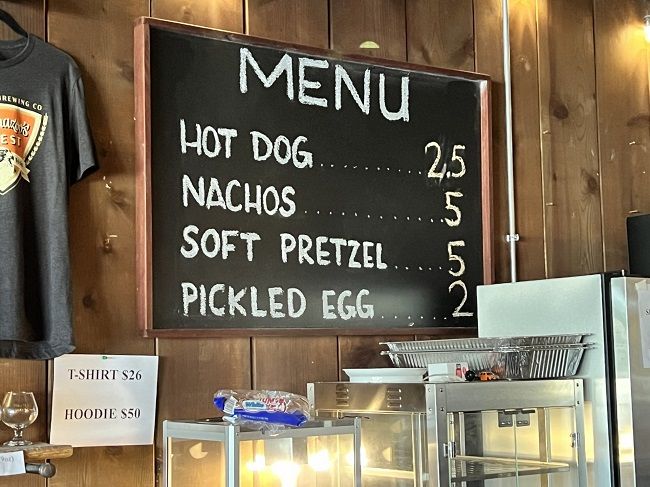 MENU
HOT DOG ............ 2.5
NACHOS ............ 5
SOFT PRETZEL .... 5
PICKLED EGG ........ 2
REWING CO
EST
T-SHIRT $26
HOODIE $50